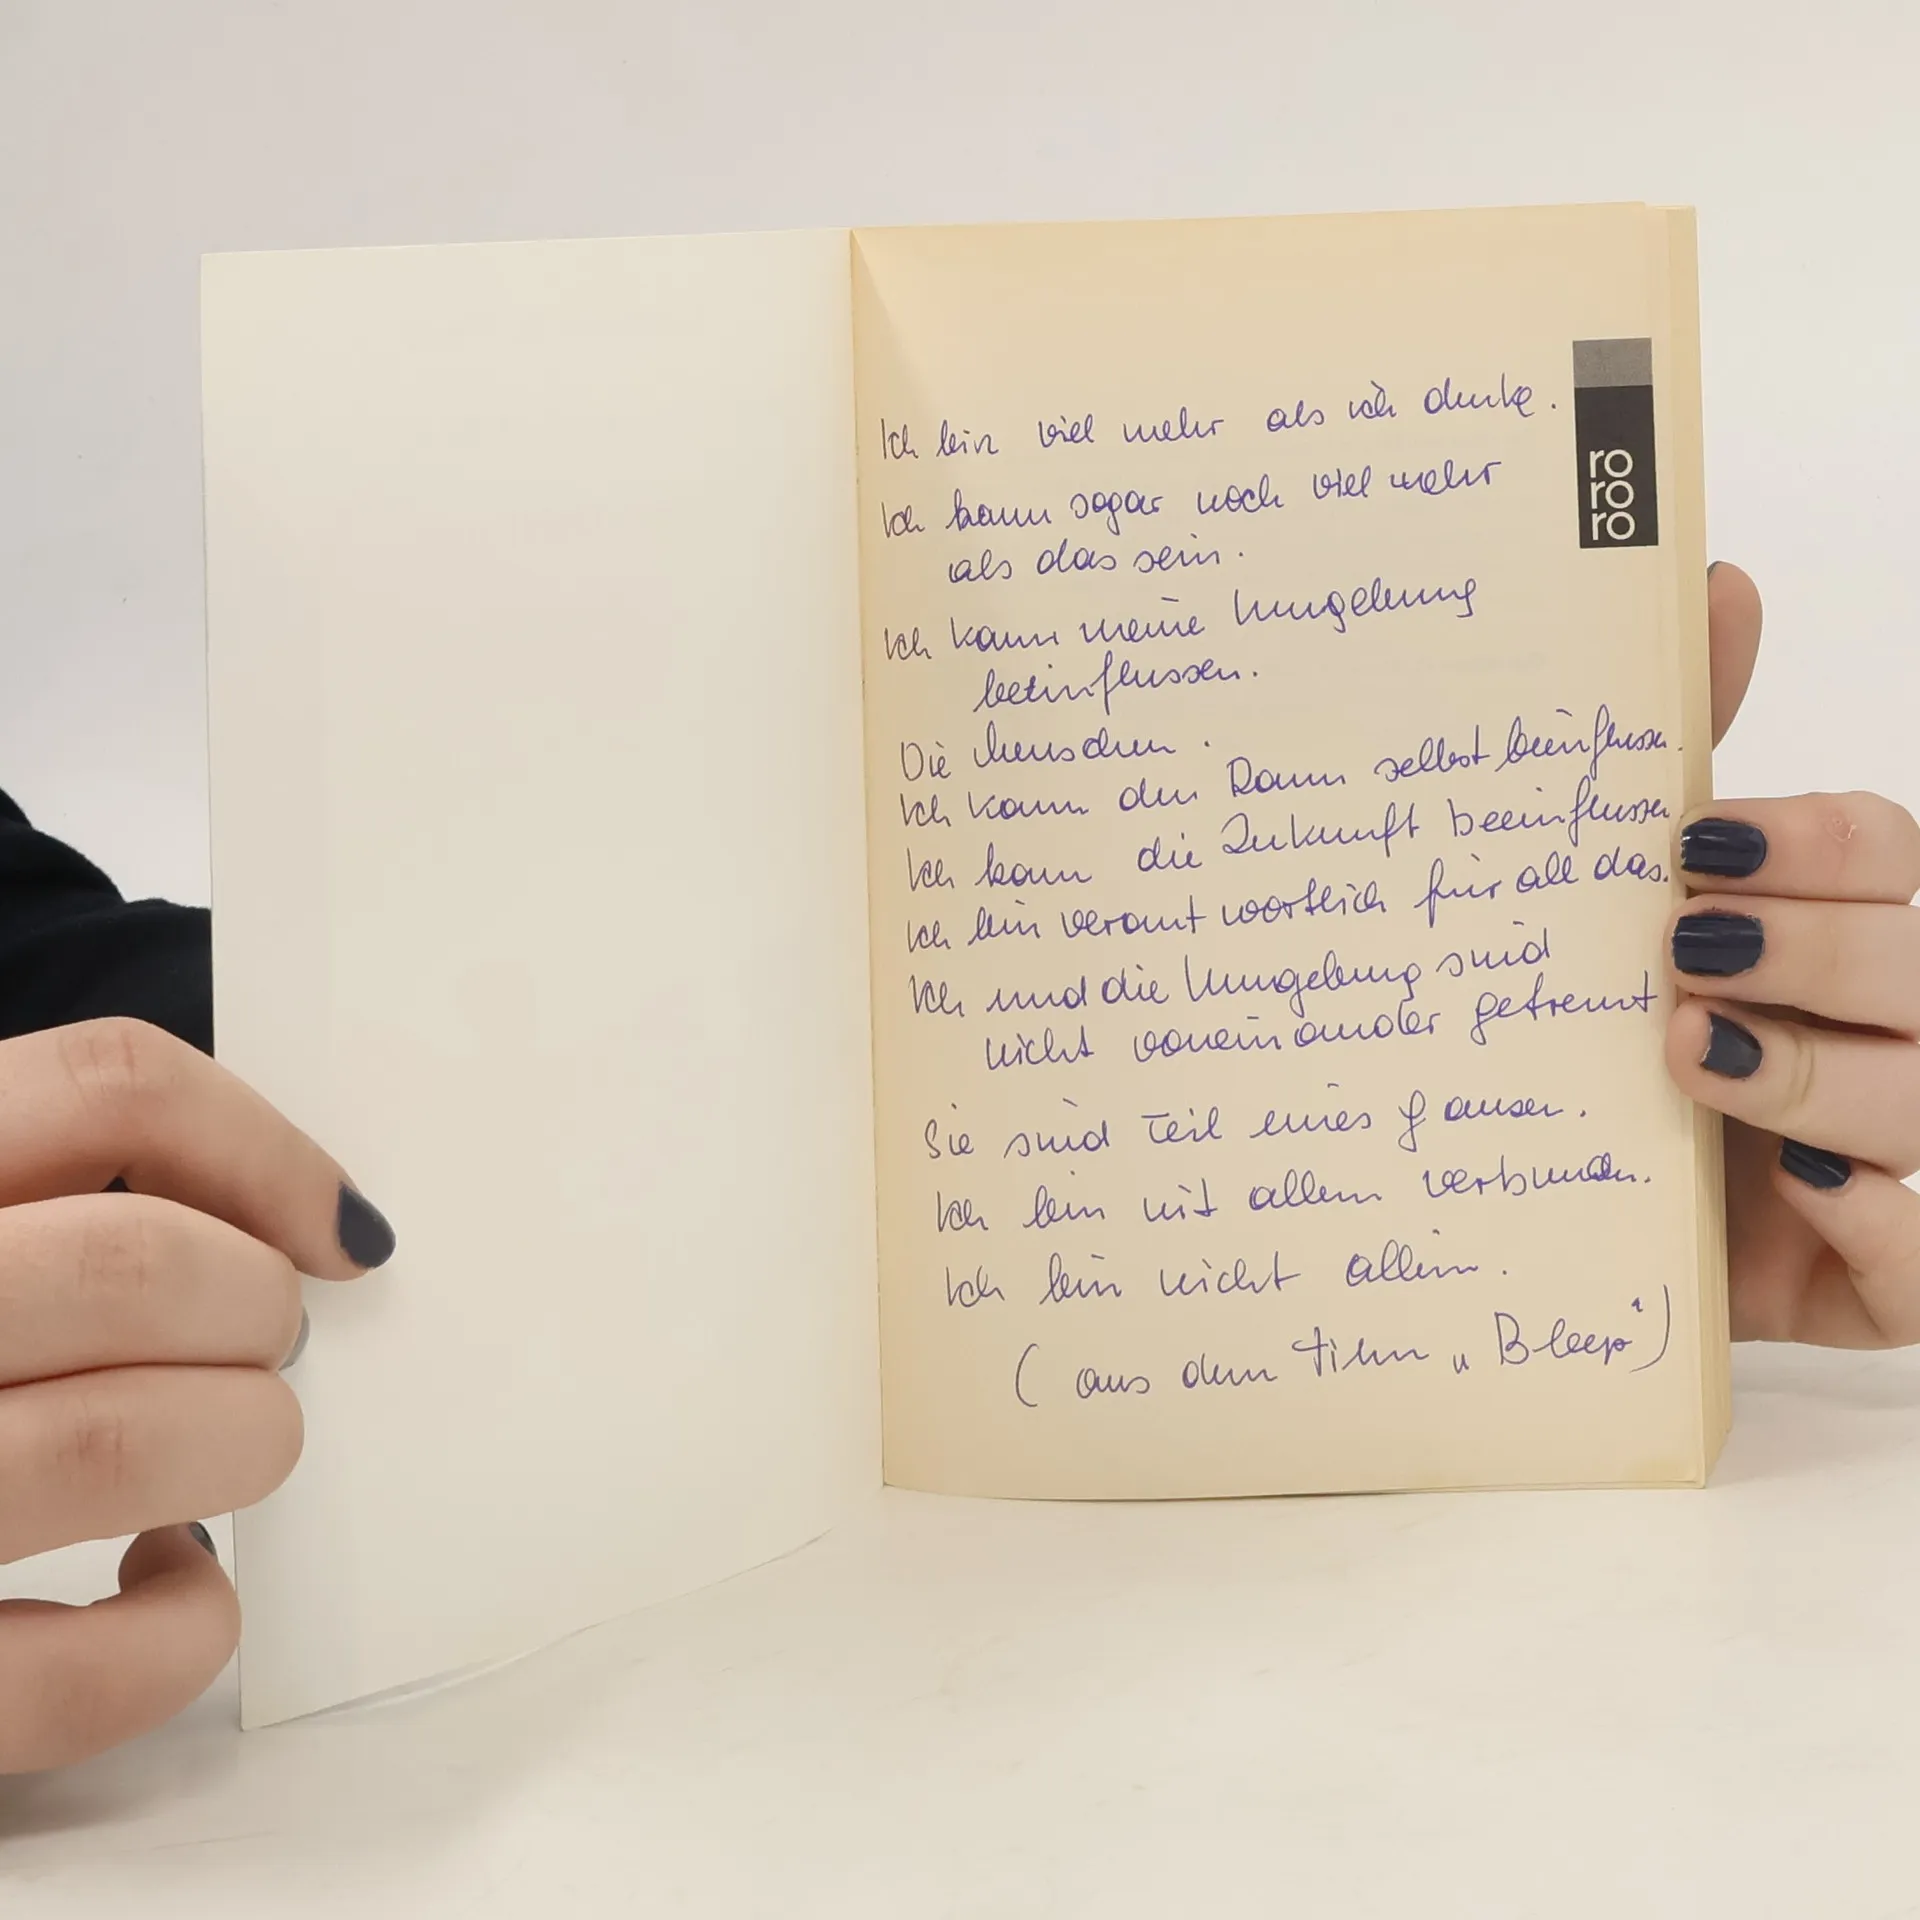 Ich bin viel mehr als ich denke.
Ich kann sogar noch viel mehr
als das sein.
Ich kann meine Umgebung
beeinflussen.
Die Menschen.
Ich kann den Raum selbst beeinflussen.
Ich kann die Zukunft beeinflussen
Ich bin verantwortlich für all das.
Ich und die Umgebung sind
nicht voneinander getrennt
Sie sind Teil eines Ganzen.
Ich bin mit allem verbunden.
Ich bin nicht allein.
(aus dem Film „Bleep“)
ro
ro
ro